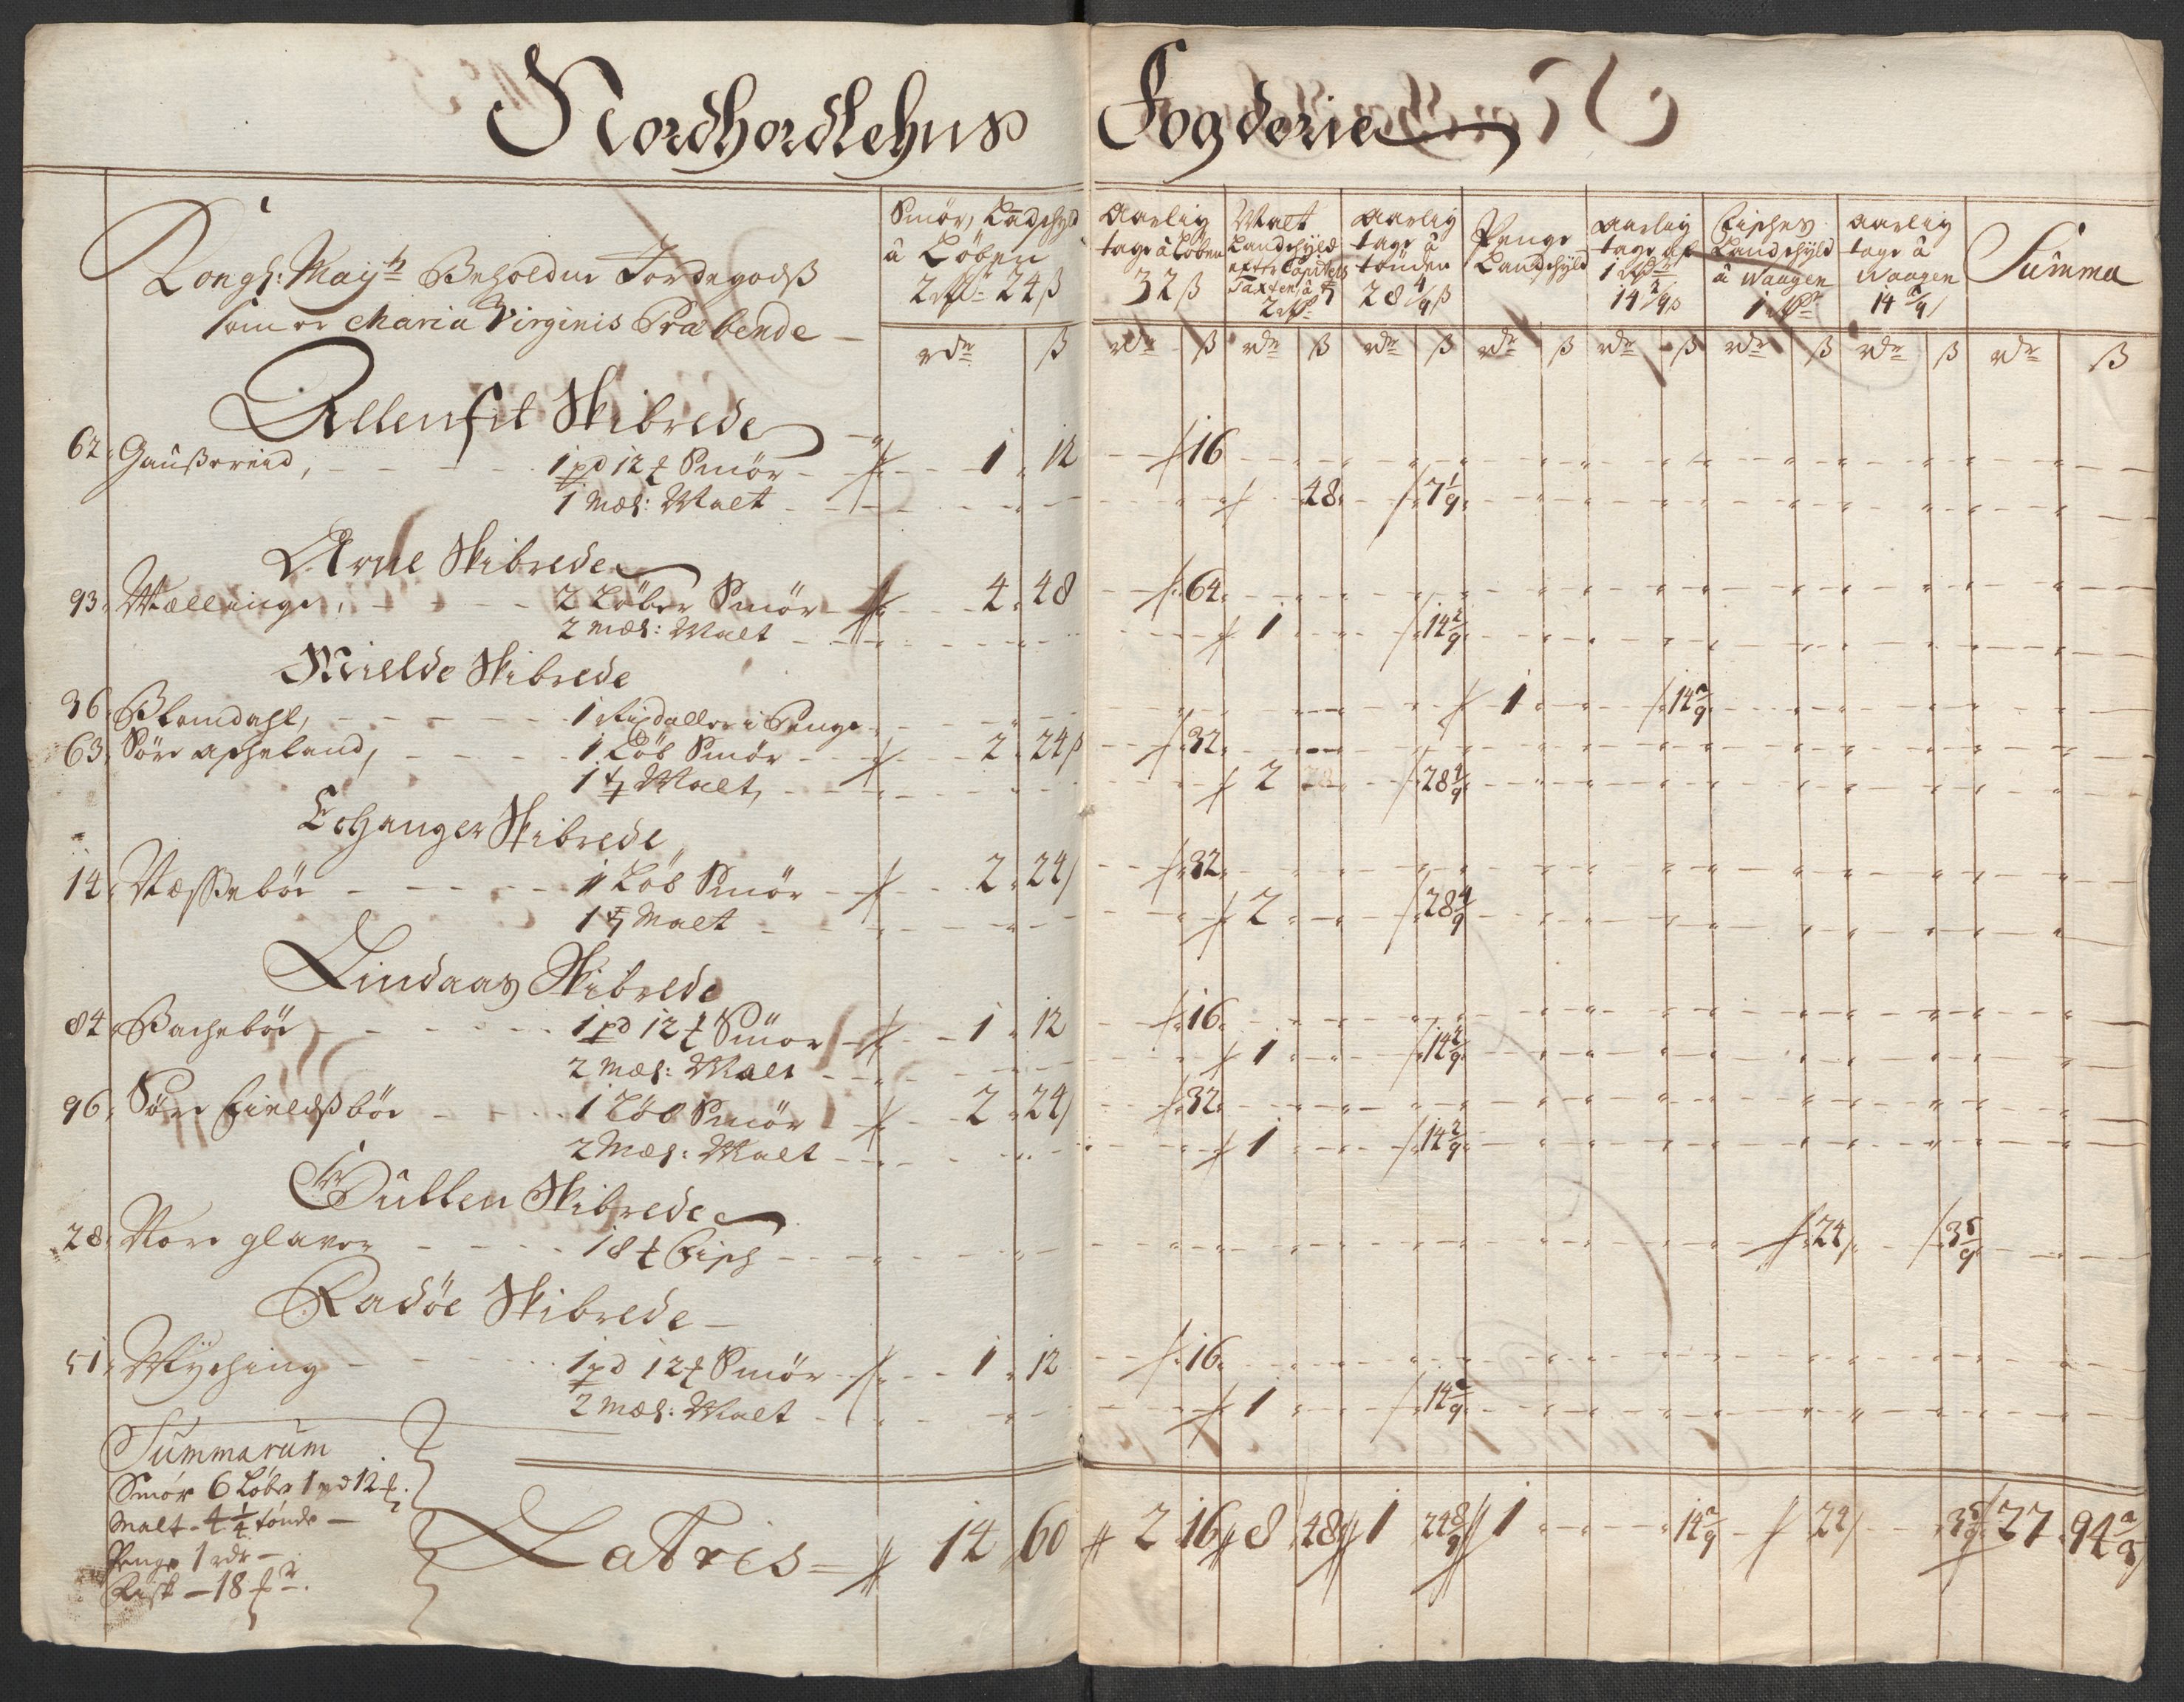 Nordhordlehns Fogderie
Kongl: Mayts Beholdne Jordegodß
som er Maria Virginis Præbende
Smør, Landschyld
â Löben
2 rdr 24 ß
Aarlig
tage â Löben
32 ß
Malt
Landschyld
efter Capitels
Taxten â
2 rdr
Aarlig
tage â
tönden
28 4/9 ß
Penge
Landschyld
Aarlig
tage af
1 rdr
14 2/9 ß
Fisches
Landschyld
â Waagen
1 rdr
Aarlig
tage â
Waagen
14 2/9
Summa
rdr ß rdr ß rdr ß rdr ß rdr ß rdr ß rdr ß rdr ß rdr ß
Allenfit Skibrede
62. Gaußereid, 1 pd 12 Smör 1 12 16
1 Mæl: Malt 48 7 1/9
Arne Skibrede
93. Mællinge, 2 Löber Smör 4 48 64
2 mæl: Malt 1 14 2/9
Mielde Skibrede
36. Blomdahl, 1 Rixdaller i Penge 1 14 2/9
63. Söre Acheland, 1 Löb Smör 2 24 ß 32
1 Malt, 2 28 4/9
Echanger Skibrede
14. Næsseböe 1 Löb Smör 2 24 32
1 Malt 2 28 4/9
Lindaas Skibrede
84. Bacheböe 1 pd 12 Smör 1 12 16
2 Mæl: Malt 1 14 2/9
96. Söre Fieldßböe 1 Löb Smör 2 24 32
2 Mæl: Malt 1 14 2/9
Gullen Skibrede
28. Nore glaver 18 Fisch 24 3 5/9
Radöe Skibrede
51. Myching 1 pd 12 Smör 1 12 16
2 Mæl: Malt 1 14 2/9
Summarum
Smör 6 Löber 1 pd 12
Malt - 4 1/4 tönde
Penge 1 rdr
Fisk - 18
Latris 14 60 2 16 8 48 1 24 8/9 1 14 2/9 24 3 5/9 27 94 2/3